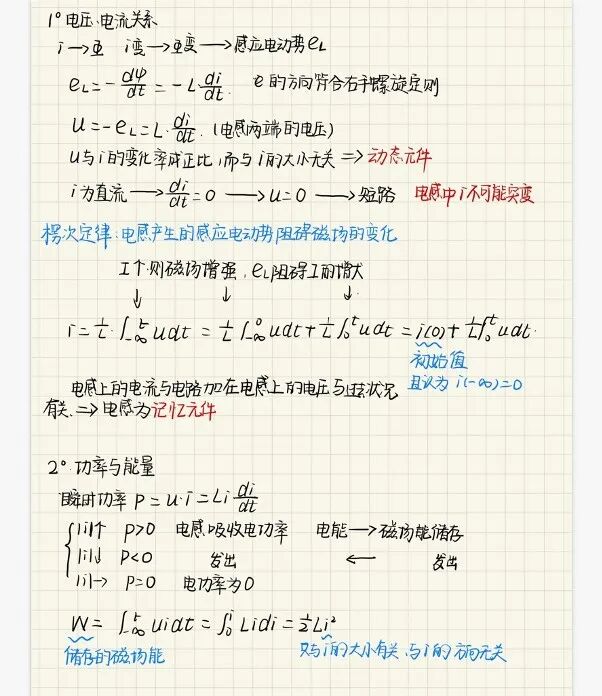 1° 电压、电流关系
i→Φ i变→Φ变→感应电动势eL
eL=-dφ/dt=-L·di/dt. e的方向符合右手螺旋定则
u=-eL=L·di/dt.(电感两端的电压)
u与i的变化率成正比,而与i的大小无关⇒动态元件
i为直流→di/dt=0→u=0→短路 电感中i不可能突变
楞次定律:电感产生的感应电动势阻碍磁场的变化
I个则磁场增强,eL阻碍I的增大
↓ ↓ ↓
i=1/L·∫_{-∞}^{t}udt=1/L∫_{-∞}^{0}udt+1/L∫_{0}^{t}udt=i(0)+1/L∫_{0}^{t}udt.
初始值
且认为i(-∞)=0
电感上的电流与电路加在电感上的电压与状况
有关⇒电感为记忆元件
2° 功率与能量
瞬时功率P=u·i=Li di/dt
|i|↑ P>0 电感吸收电功率 电能→磁场能储存
|i|↓ P<0 发出 ← 发出
|i|→ P=0 电功率为0
W=∫_{-∞}^{t}uidt=∫_{0}^{i}Lidi=1/2Li²
储存的磁场能 只与i的大小有关,与i的方向无关